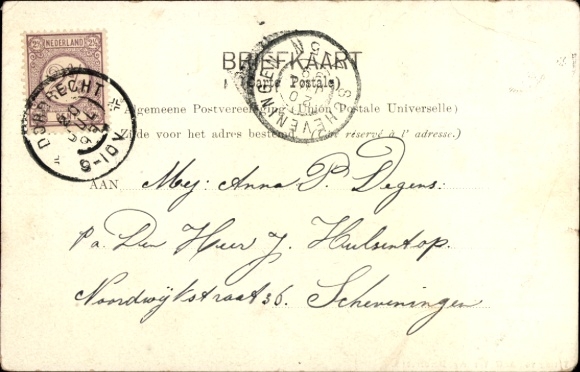 2½ NEDERLAND 2½
DORDRECHT
SCHEVENINGEN
BRIEFKAART
(Carte Postale)
Algemeene Postvereeniging (Union Postale Universelle)
Zijde voor het adres bestemd (Côté réservé à l'adresse.)
AAN Mej: Anna P. Degens:
P/a. Den Heer J. Hulsentop.
Noordwijkstraat 36. Scheveningen